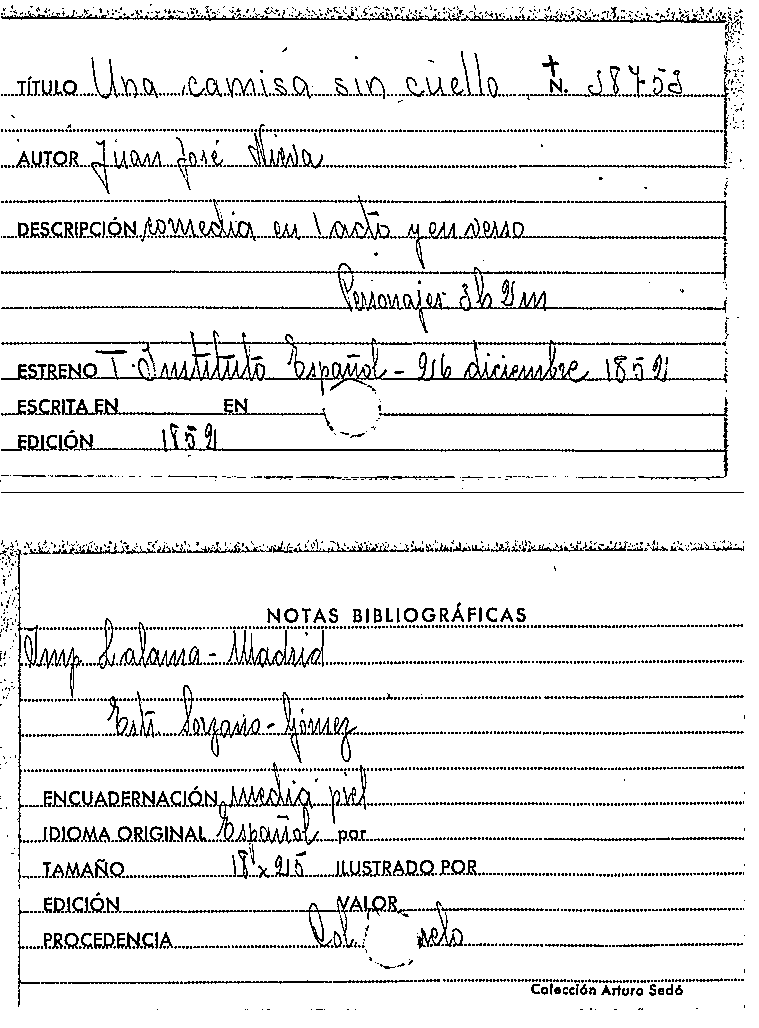 TÍTULO Una camisa sin cuello N. 38753
AUTOR Juan José Nieva
DESCRIPCIÓN comedia en 1 acto y en verso
Personajes 3h 2m
ESTRENO T. Instituto Español - 26 diciembre 1852
ESCRITA EN EN
EDICIÓN 1852
NOTAS BIBLIOGRÁFICAS
Imp Lalama - Madrid
Lozano - Gómez
ENCUADERNACIÓN media piel
IDIOMA ORIGINAL Español por
TAMAÑO 18 x 25 ILUSTRADO POR
EDICIÓN VALOR
PROCEDENCIA
Colección Arturo Sedó